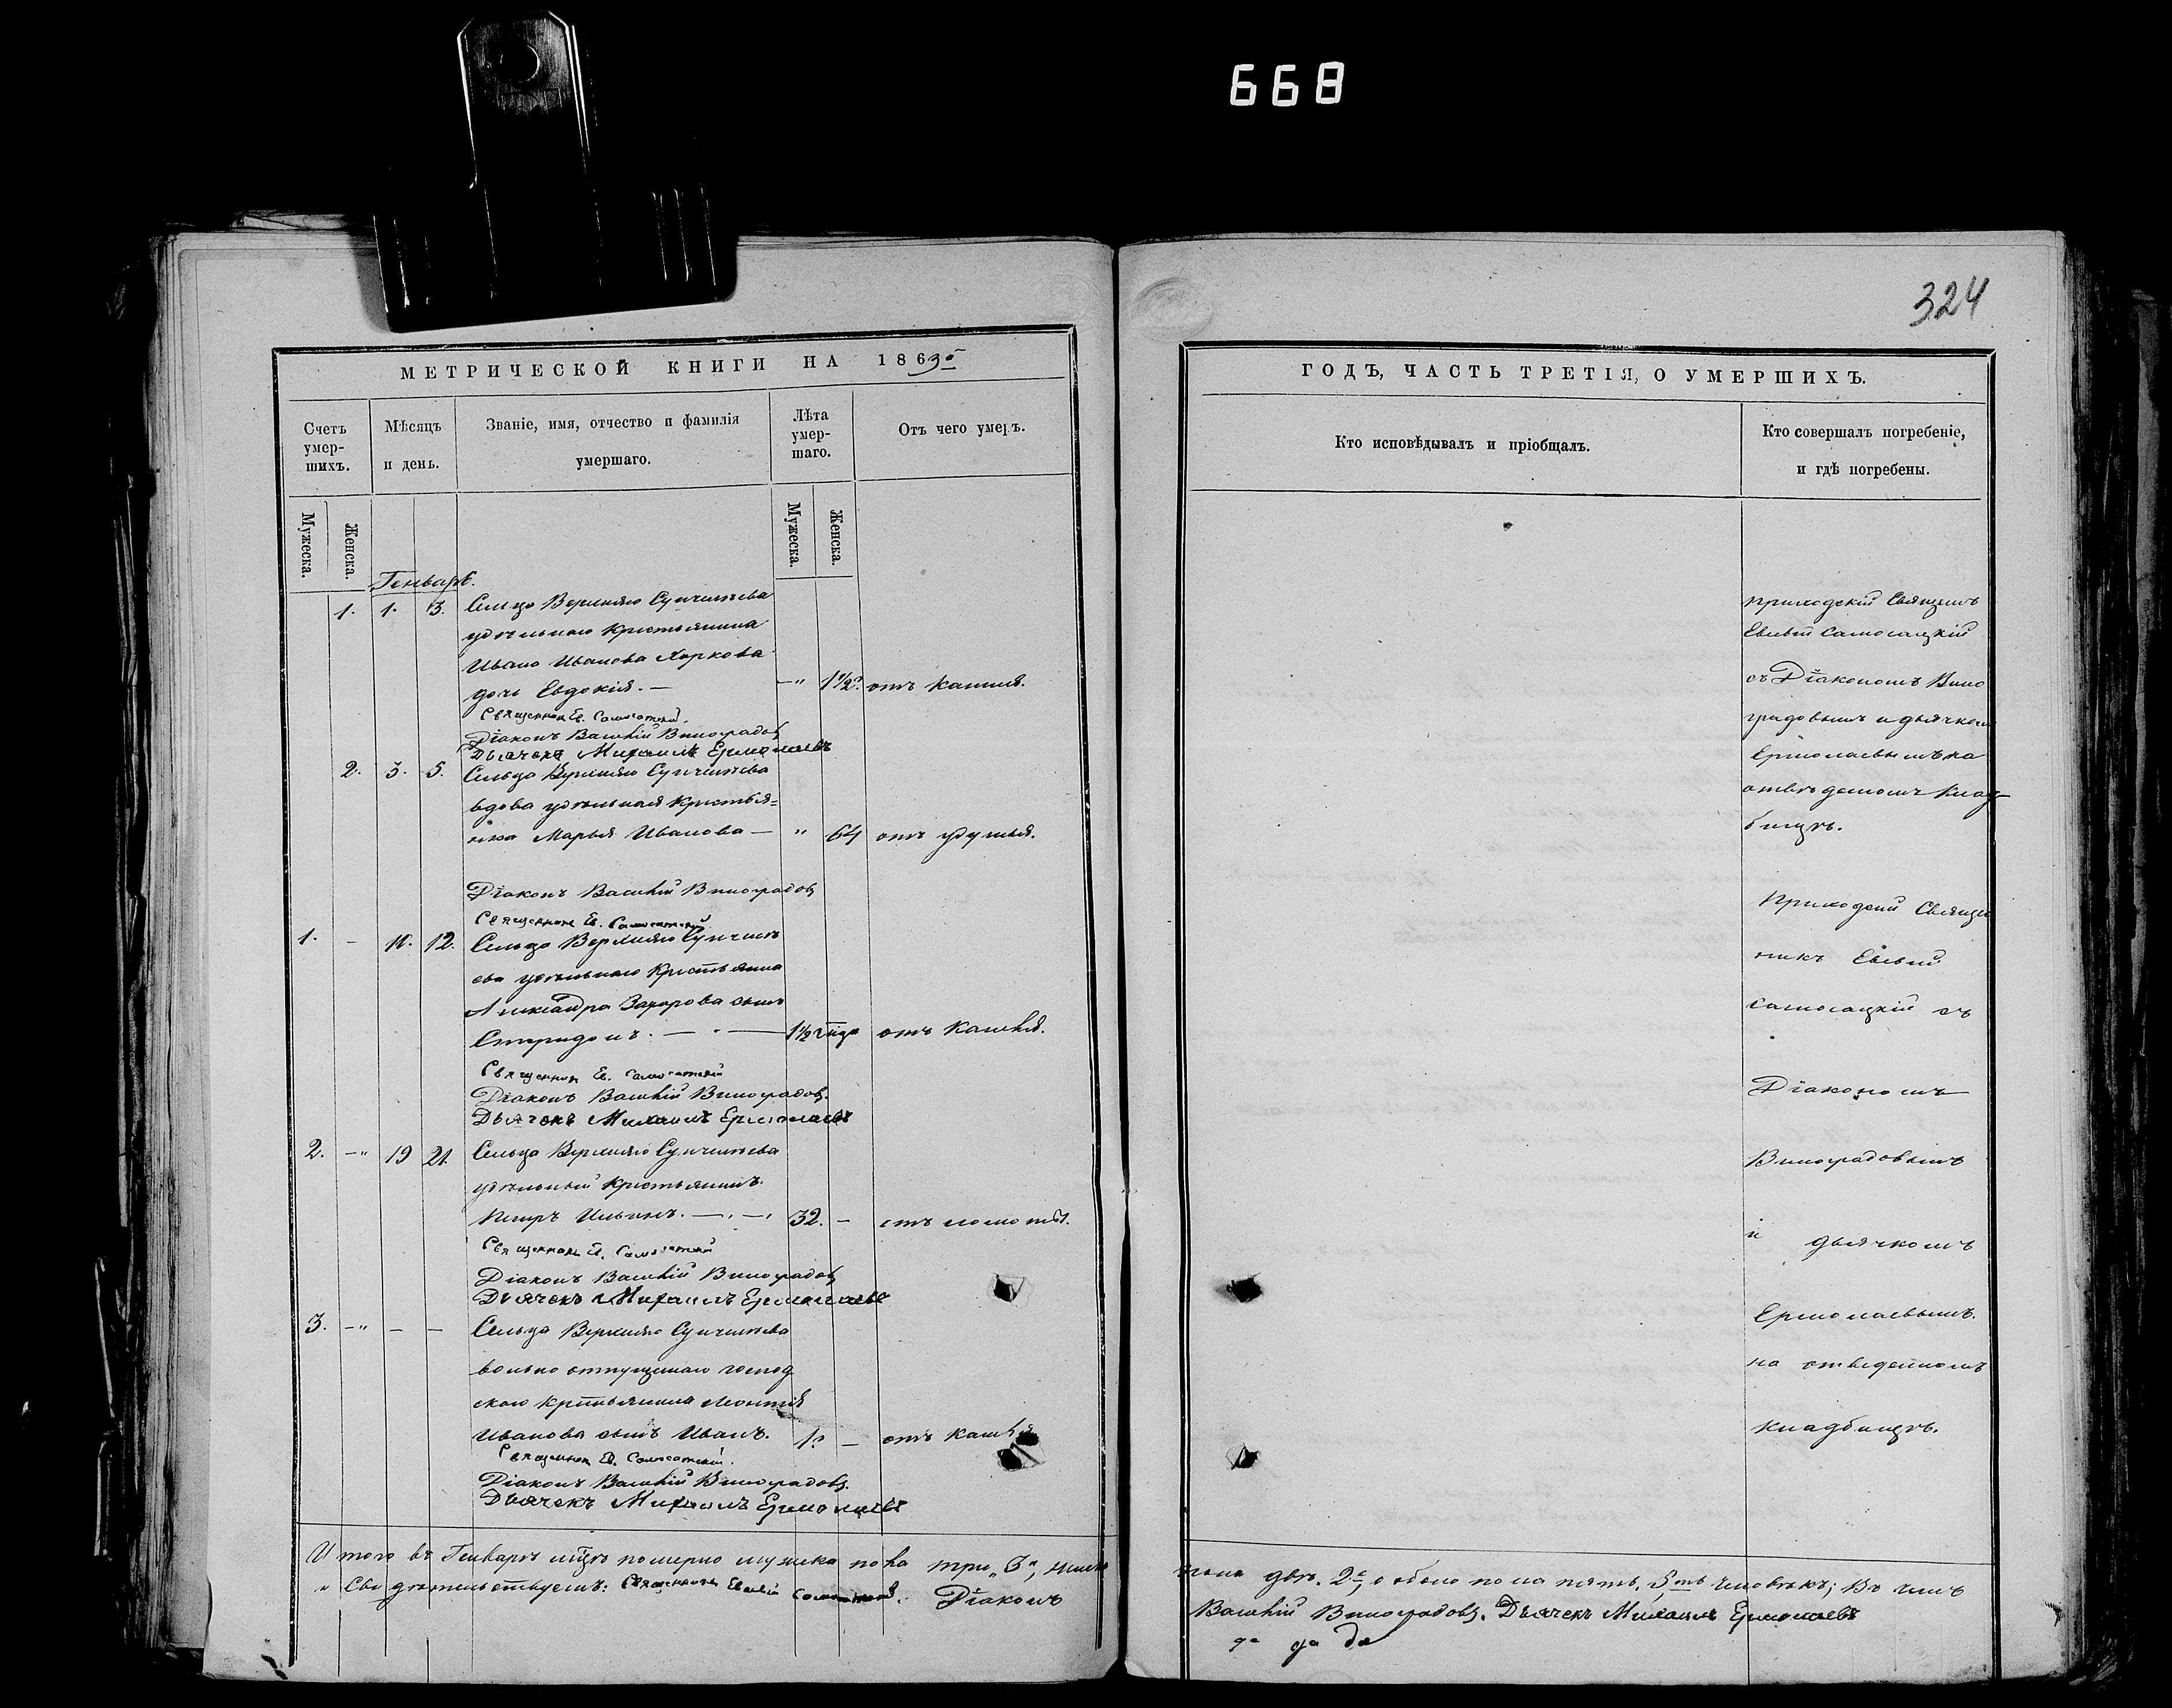 668
324
МЕТРИЧЕСКОЙ КНИГИ НА 1863й
Счетъ умер-шихъ.
Мѣсяцъ и день.
Званіе, имя, отчество и фамилія умершаго.
Лѣта умер-шаго.
Отъ чего умеръ.
Мужеска.
Женска.
Мужеска.
Женска.
Генварь.
1. 1. 3. Сельца Верхняго
удѣльнаго крестьянина
Ивана Иванова
дочь Евдокія. — —" 1½ отъ кашля.
Священник Ев. Самосатскій.
Діаконъ Василій Виноградовъ
Дьячекъ Михаилъ Ермолаевъ
2. 3. 5. Сельца Верхняго
вдова удѣльная крестья=
нка Марья Иванова — " 64 отъ удушья.
Діаконъ Василій Виноградовъ
Священник Ев. Самосатскій
1. - 10. 12. Сельца Верхняго
ева удѣльнаго крестьянина
Александра Захарова сынъ
Спиридонъ. — 1½ года отъ кашля.
Священник Ев. Самосатскій
Діаконъ Василій Виноградовъ.
Дьячекъ Михаилъ Ермолаевъ
2. —" 19 21. Сельца Верхняго
удѣльный крестьянинъ
Петръ Ильинъ. — 32. – отъ ломоты.
Священник Ев. Самосатскій
Діаконъ Василій Виноградовъ
Дьячекъ Михаилъ Ермолаевъ
3. —" — — Сельца Верхняго
вольно отпущенаго господ
скаго крестьянина Леонтія
Иванова сынъ Иванъ. 1. – отъ кашля
Священник Ев. Самосатскій.
Діаконъ Василій Виноградовъ.
Дьячекъ Михаилъ Ермолаевъ
Итого въ Генварѣ мцѣ померло мужска пола три, 3,
" Свидѣтельствуемъ: Священникъ Евсевій Самосатскій. Діаконъ
ГОДЪ, ЧАСТЬ ТРЕТІЯ, О УМЕРШИХЪ.
Кто исповѣдывалъ и пріобщалъ.
Кто совершалъ погребеніе, и гдѣ погребены.
приходскій Священъ
Евсевій Самосацкій
съ Діакономъ Вино
градовымъ и дьячком
Ермолаевымъ на
отведеномъ клад
бищѣ.
Приходскій Священ
никъ Евсевій
Самосацкій съ
Діакономъ
Виноградовымъ
и дьячкомъ
Ермолаевымъ.
на отведенномъ
кладбищѣ.
пола двѣ, 2, обоего пола пять, 5ть человѣкъ; въ чемъ
Василій Виноградовъ. Дьячекъ Михаилъ Ермолаевъ